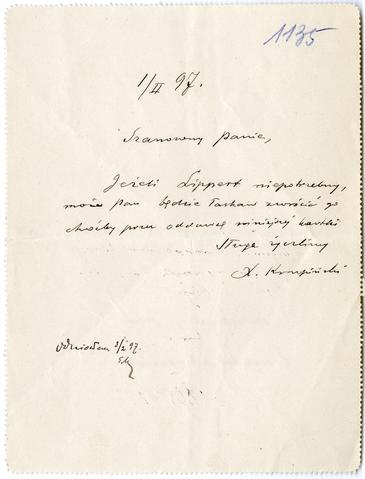 1135
1/II 97.
Szanowny Panie,
Jeżeli Lippert niepotrzebny,
może Pan będzie łaskaw zwrócić go
choćby przez oddawcę niniejszej kartki
Sługa życzliwy
X.
Odniosłem 3/2 97.